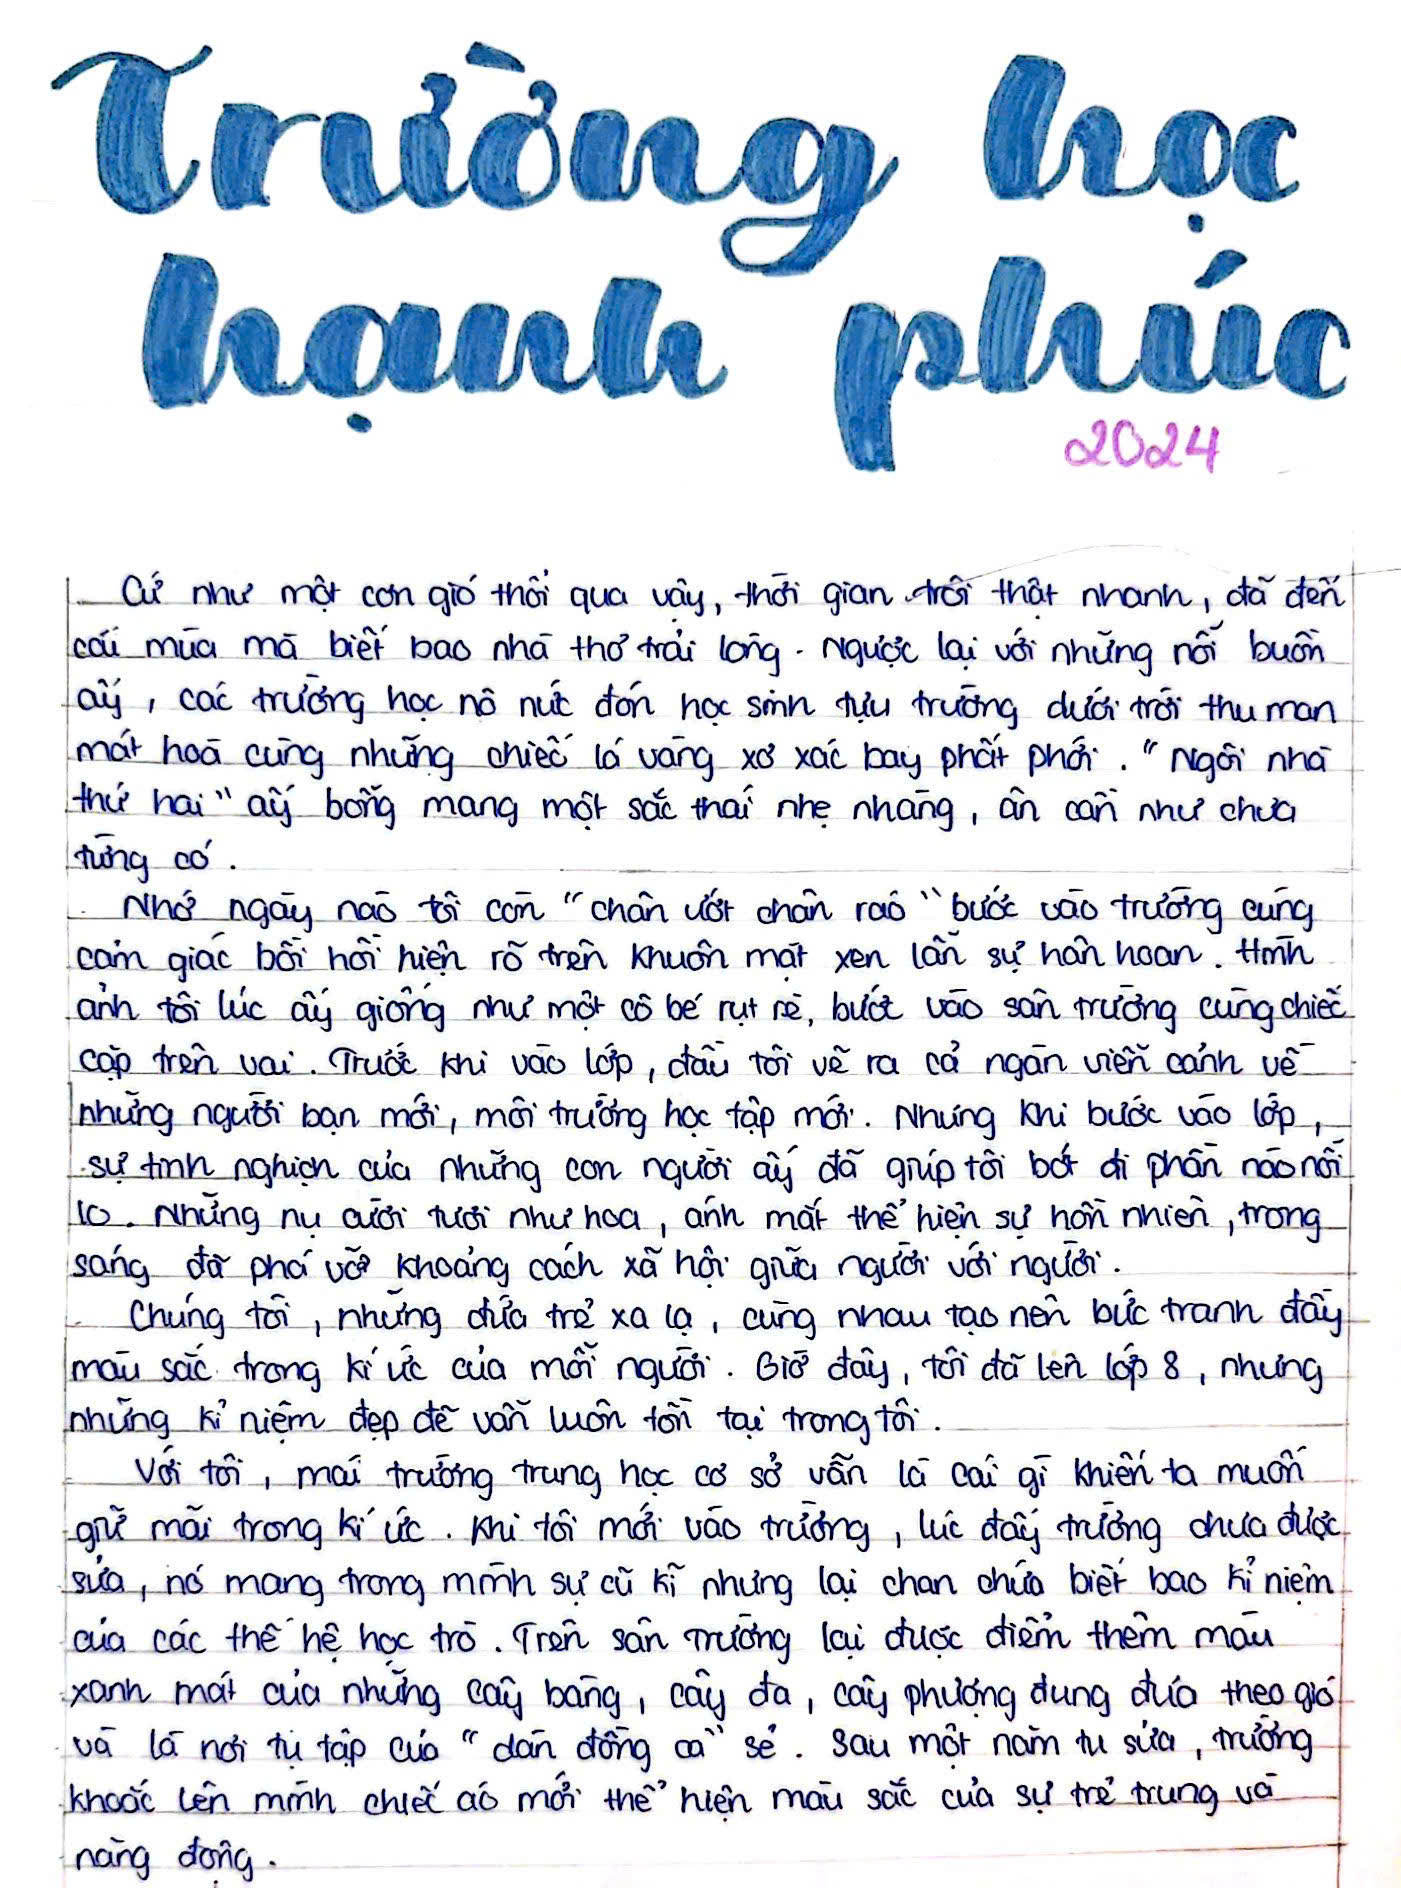 Trường học
hạnh phúc
2024
Cứ như một cơn gió thổi qua vậy, thời gian trôi thật nhanh, đã đến
cái mùa mà biết bao nhà thơ trải lòng. Ngược lại với những nỗi buồn
ấy, các trường học nô nức đón học sinh tựu trường dưới trời thu man
mát hoà cùng những chiếc lá vàng xơ xác bay phất phới. "Ngôi nhà
thứ hai" ấy bỗng mang một sắc thái nhẹ nhàng, ân cần như chưa
từng có.
Nhớ ngày nào tôi còn "chân ướt chân ráo" bước vào trường cùng
cảm giác bồi hồi hiện rõ trên khuôn mặt xen lẫn sự hân hoan. Hình
ảnh tôi lúc ấy giống như một cô bé rụt rè, bước vào sân trường cùng chiếc
cặp trên vai. Trước khi vào lớp, đầu tôi vẽ ra cả ngàn viễn cảnh về
những người bạn mới, môi trường học tập mới. Nhưng khi bước vào lớp,
sự tinh nghịch của những con người ấy đã giúp tôi bớt đi phần nào nỗi
lo. Những nụ cười tươi như hoa, ánh mắt thể hiện sự hồn nhiên, trong
sáng đã phá vỡ khoảng cách xã hội giữa người với người.
Chúng tôi, những đứa trẻ xa lạ, cùng nhau tạo nên bức tranh đầy
màu sắc trong kí ức của mỗi người. Giờ đây, tôi đã lên lớp 8, nhưng
những kỉ niệm đẹp đẽ vẫn luôn tồn tại trong tôi.
Với tôi, mái trường trung học cơ sở vẫn là cái gì khiến ta muốn
giữ mãi trong kí ức. Khi tôi mới vào trường, lúc đấy trường chưa được
sửa, nó mang trong mình sự cũ kĩ nhưng lại chan chứa biết bao kỉ niệm
của các thế hệ học trò. Trên sân trường lại được điểm thêm màu
xanh mát của những cây bàng, cây đa, cây phượng đung đưa theo gió
và là nơi tụ tập của "dàn đồng ca" sẻ. Sau một năm tu sửa, trường
khoác lên mình chiếc áo mới thể hiện màu sắc của sự trẻ trung và
năng động.